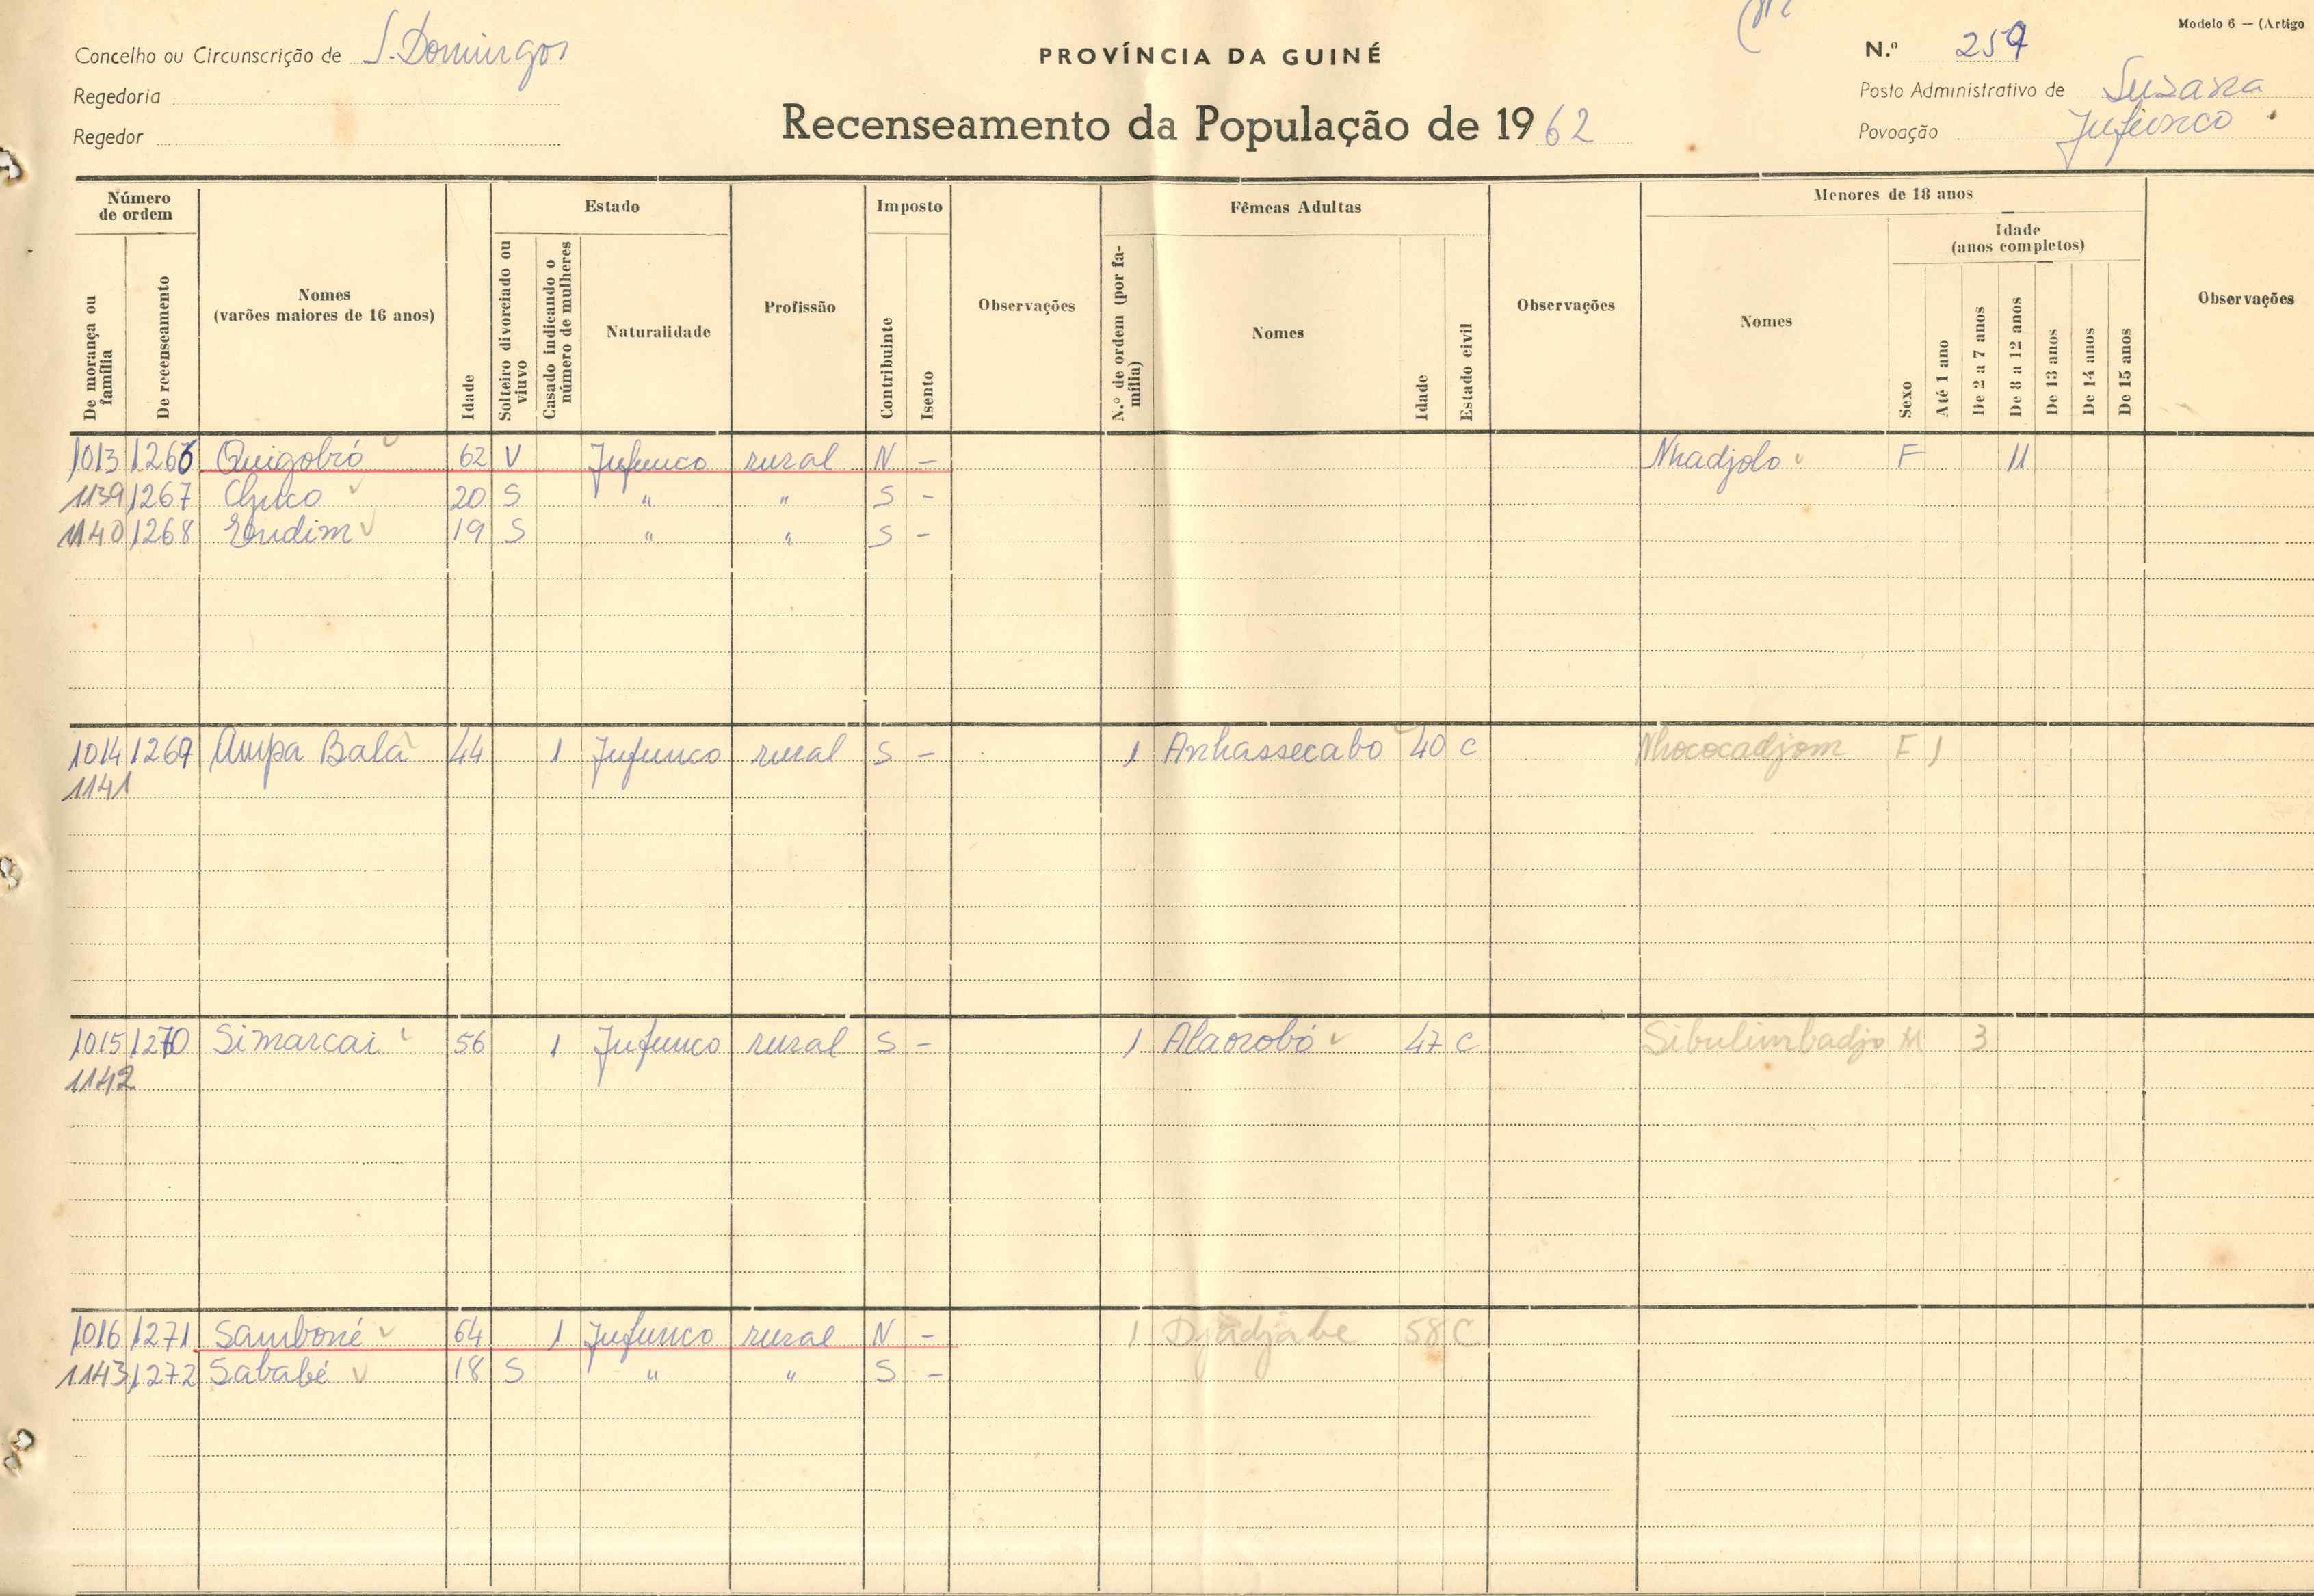 Modelo 6 — (Artigo
Concelho ou Circunscrição de S. Domingos
PROVÍNCIA DA GUINÉ
N.º 259
Regedoria
Posto Administrativo de Suzana
Regedor
Recenseamento da População de 1962
Povoação Jufunco
Número de ordem
De morança ou família
De recenseamento
Nomes (varões maiores de 16 anos)
Idade
Estado
Solteiro divorciado ou viuvo
Casado indicando o número de mulheres
Naturalidade
Profissão
Imposto
Contribuinte
Isento
Observações
Fêmeas Adultas
N.º de ordem (por família)
Nomes
Idade
Estado civil
Observações
Menores de 18 anos
Nomes
Sexo
Idade (anos completos)
Até 1 ano
De 2 a 7 anos
De 8 a 12 anos
De 13 anos
De 14 anos
De 15 anos
Observações
1013 1266 Quigobró 62 V Jufunco rural N - Nhadjolo F 11
1139 1267 Chico 20 S " " S -
1140 1268 Endim 19 S " " S -
1014 1269 Ampa Bala 44 1 Jufunco rural S - 1 Anhassecabo 40 C Nhococadjom F 1
1141
1015 1270 Simarcai 56 1 Jufunco rural S - 1 Alaorobó 47 C Sibulimbadjo M 3
1142
1016 1271 Samboné 64 1 Jufunco rural N - 1 Djadjabe 58 C
1143 1272 Sababé 18 S " " S -